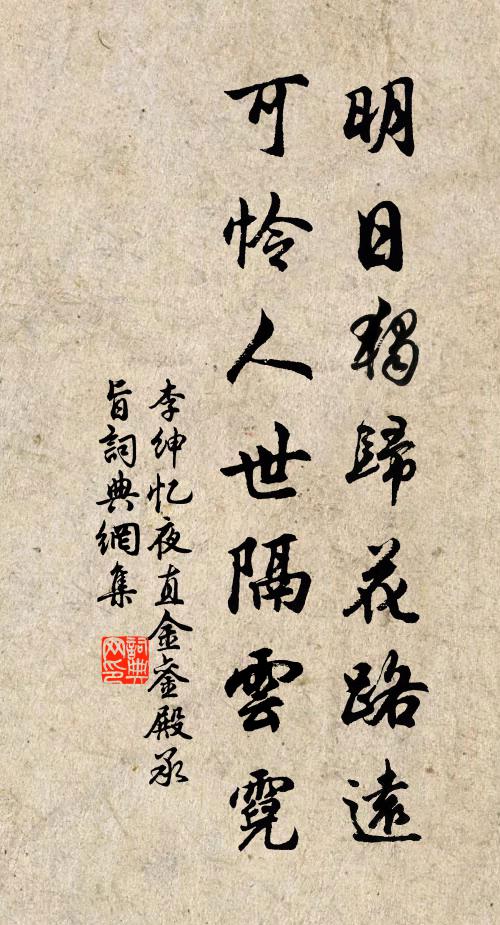 明日獨歸花路遠
可怜人世隔雲霓
李紳忆夜直金銮殿承
旨詞典網集
詞典
网印